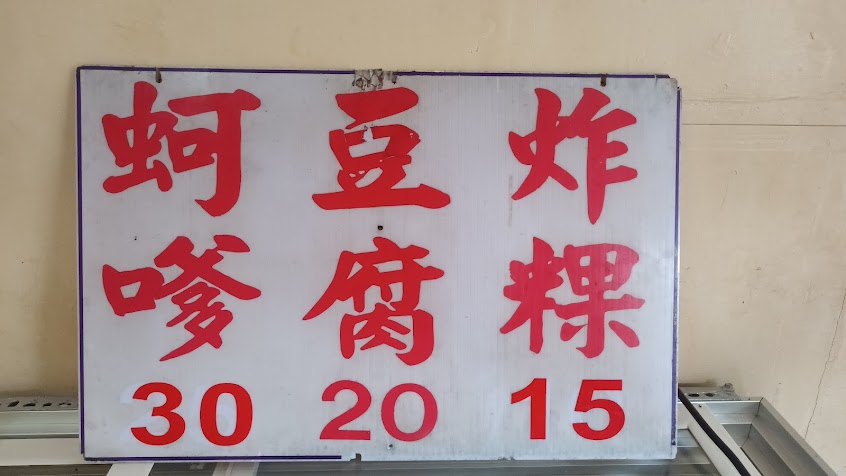 蚵嗲 30
豆腐 20
炸粿 15